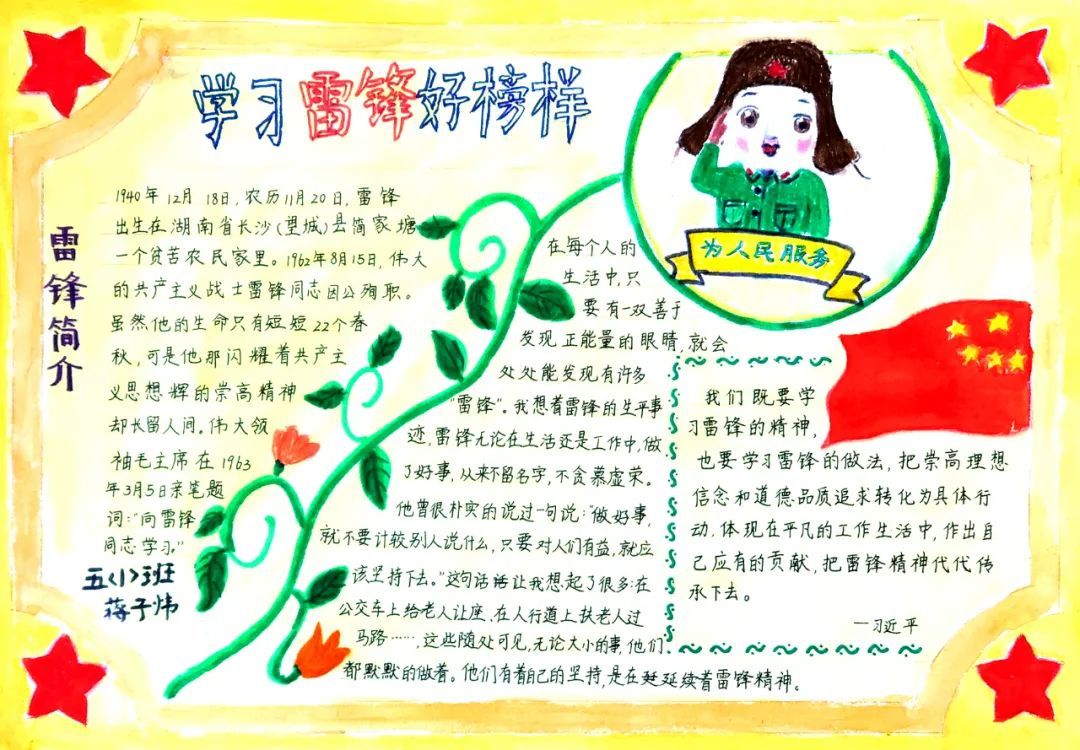 学习雷锋好榜样
雷锋简介
1940年12月18日,农历11月20日,雷锋
出生在湖南省长沙(望城)县简家塘
一个贫苦农民家里。1962年8月15日,伟大
的共产主义战士雷锋同志因公殉职。
虽然他的生命只有短短22个春
秋,可是他那闪耀着共产主
义思想辉的崇高精神
却长留人间。伟大领
袖毛主席在1963
年3月5日亲笔题
词:"向雷锋
同志学习。"
五<1>班
蒋子炜
为人民服务
在每个人的
生活中,只
要有一双善于
发现正能量的眼睛,就会
处处能发现有许多
"雷锋"。我想着雷锋的生平事
迹,雷锋无论在生活还是工作中,做
了好事,从来不留名字,不贪慕虚荣。
他曾很朴实的说过一句说:"做好事,
就不要计较别人说什么,只要对人们有益,就应
该坚持下去。"这句话话让我想起了很多:在
公交车上给老人让座、在人行道上扶老人过
马路……,这些随处可见,无论大小的事,他们
都默默的做着。他们有着自己的坚持,是在延延续着雷锋精神。
我们既要学
习雷锋的精神,
也要学习雷锋的做法,把崇高理想
信念和道德品质追求转化为具体行
动,体现在平凡的工作生活中,作出自
己应有的贡献,把雷锋精神代代传
承下去。
—习近平